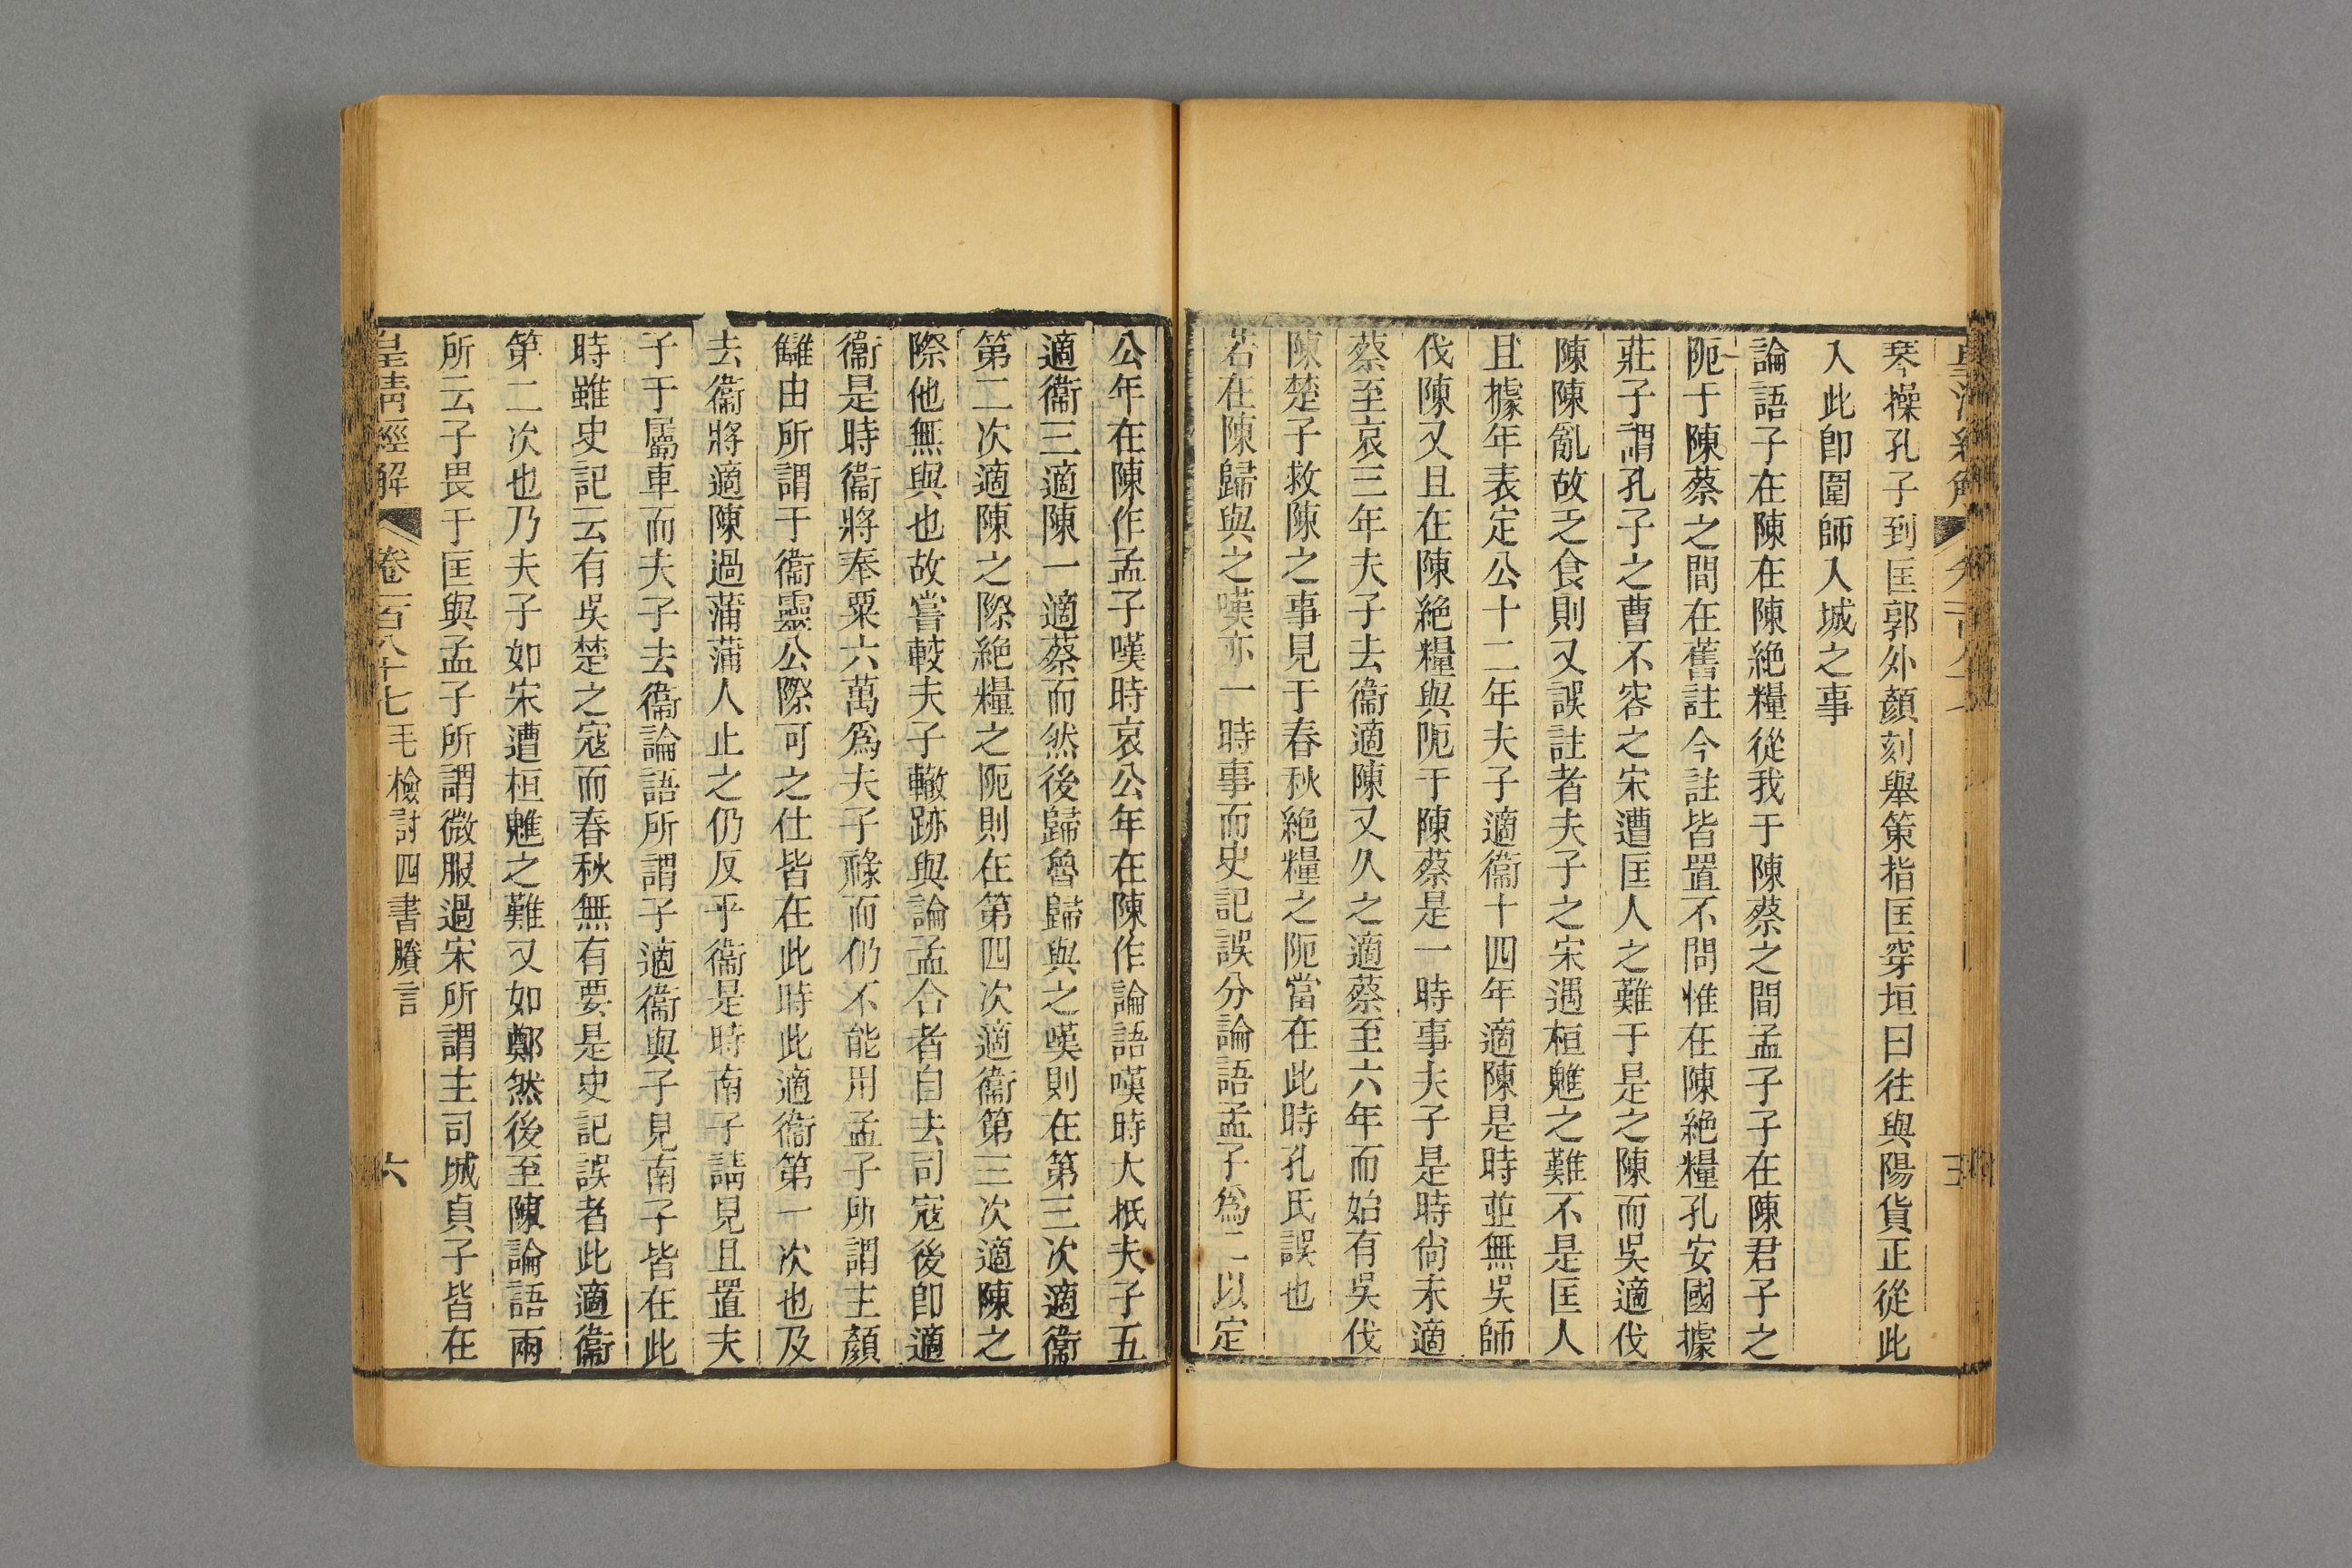 琴操孔子到匡郭外顏刻舉策指匡穿垣曰往與陽貨正從此
入此卽圍師入城之事
論語子在陳在陳絶糧從我于陳蔡之間孟子子在陳君子之
阨于陳蔡之間在舊註今註皆置不問惟在陳絶糧孔安國據
莊子謂孔子之曹不容之宋遭匡人之難于是之陳而吳適伐
陳陳亂故乏食則又誤註者夫子之宋遇桓魋之難不是匡人
且據年表定公十二年夫子適衞十四年適陳是時並無吳師
伐陳又且在陳絶糧與阨于陳蔡是一時事夫子是時尙未適
蔡至哀三年夫子去衞適陳又久之適蔡至六年而始有吳伐
陳楚子救陳之事見于春秋絶糧之阨當在此時孔氏誤也
若在陳歸與之嘆亦一時事而史記誤分論語孟子爲二以定
公年在陳作孟子嘆時哀公年在陳作論語嘆時大抵夫子五
適衞三適陳一適蔡而然後歸魯歸與之嘆則在第三次適衞
第二次適陳之際絶糧之阨則在第四次適衞第三次適陳之
際他無與也故嘗較夫子轍跡與論孟合者自去司寇後卽適
衞是時衞將奉粟六萬爲夫子祿而仍不能用孟子所謂主顏
讎由所謂于衞靈公際可之仕皆在此時此適衞第一次也及
去衞將適陳過蒲蒲人止之仍反乎衞是時南子請見且置夫
子于屬車而夫子去衞論語所謂子適衞與子見南子皆在此
時雖史記云有吳楚之寇而春秋無有要是史記誤者此適衞
第二次也乃夫子如宋遭桓魋之難又如鄭然後至陳論語兩
所云子畏于匡與孟子所謂微服過宋所謂主司城貞子皆在
皇淸經解 卷一百八十七 毛檢討四書賸言 六